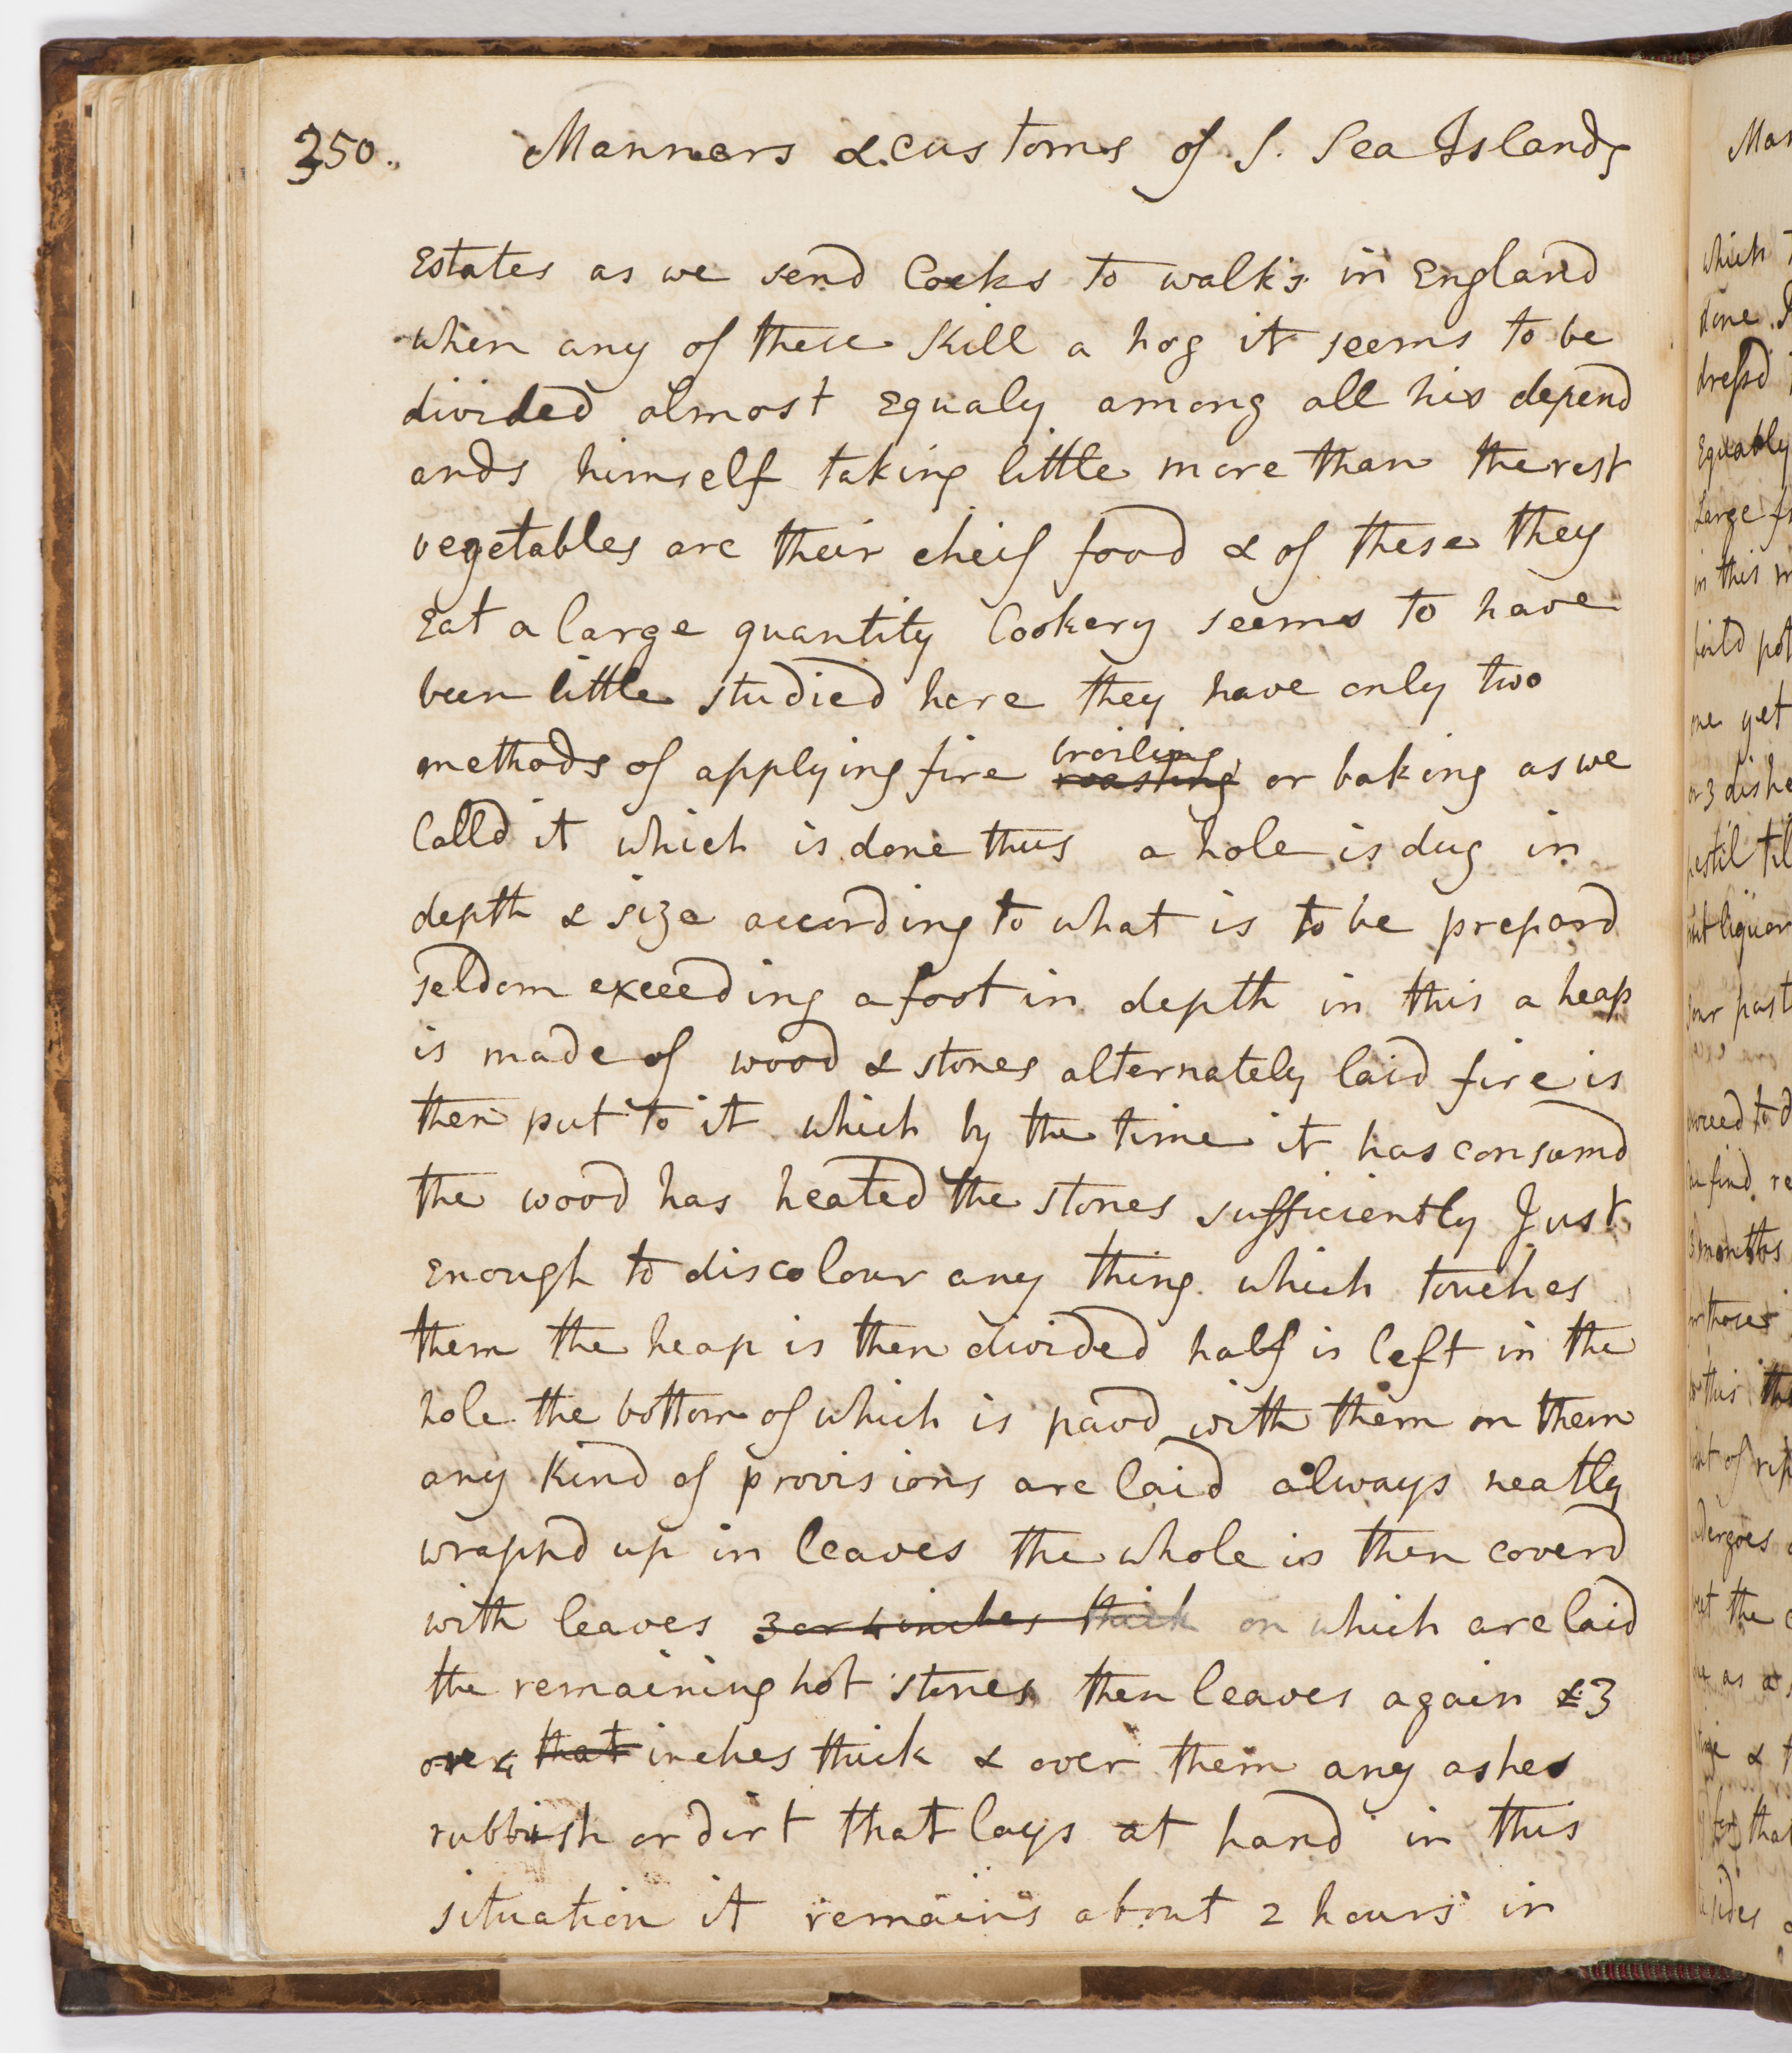 350. Manners & customs of S. Sea Islands
Estates as we send Cocks to walks in England
when any of these Kill a hog it seems to be
divided almost Equaly among all his depend
ands himself taking little more than the rest
vegetables are their cheif food & of these they
Eat a large quantity Cookery seems to have
been little studied here they have only two
methods of applying fire roasting broiling or baking as we
Calld it which is done thus a hole is dug in
depth & size according to what is to be prepard
seldom exceeding a foot in depth in this a heap
is made of wood & stones alternately laid fire is
then put to it which by the time it has consumd
the wood has heated the stones sufficiently Just
Enough to discolour any thing which touches
them the heap is then divided half is left in the
hole the bottom of which is pavd with them on them
any Kind of provisions are laid always neatly
wrappd up in leaves the whole is then coverd
with leaves 3 or 4 inches thick on which are laid
the remaining hot stones then leaves again & 3
or 4 that inches thick & over them any ashes
rubbish or dirt that lays at hand in this
situation it remains about 2 hours in
Mar
which
done
dressd
Equably
Large
in this
pot
one yet
or 3 dishe
pestil til
liquor
past
to d
find re
3 months
those
this
of
undergoes
the
as a
&
that
sides